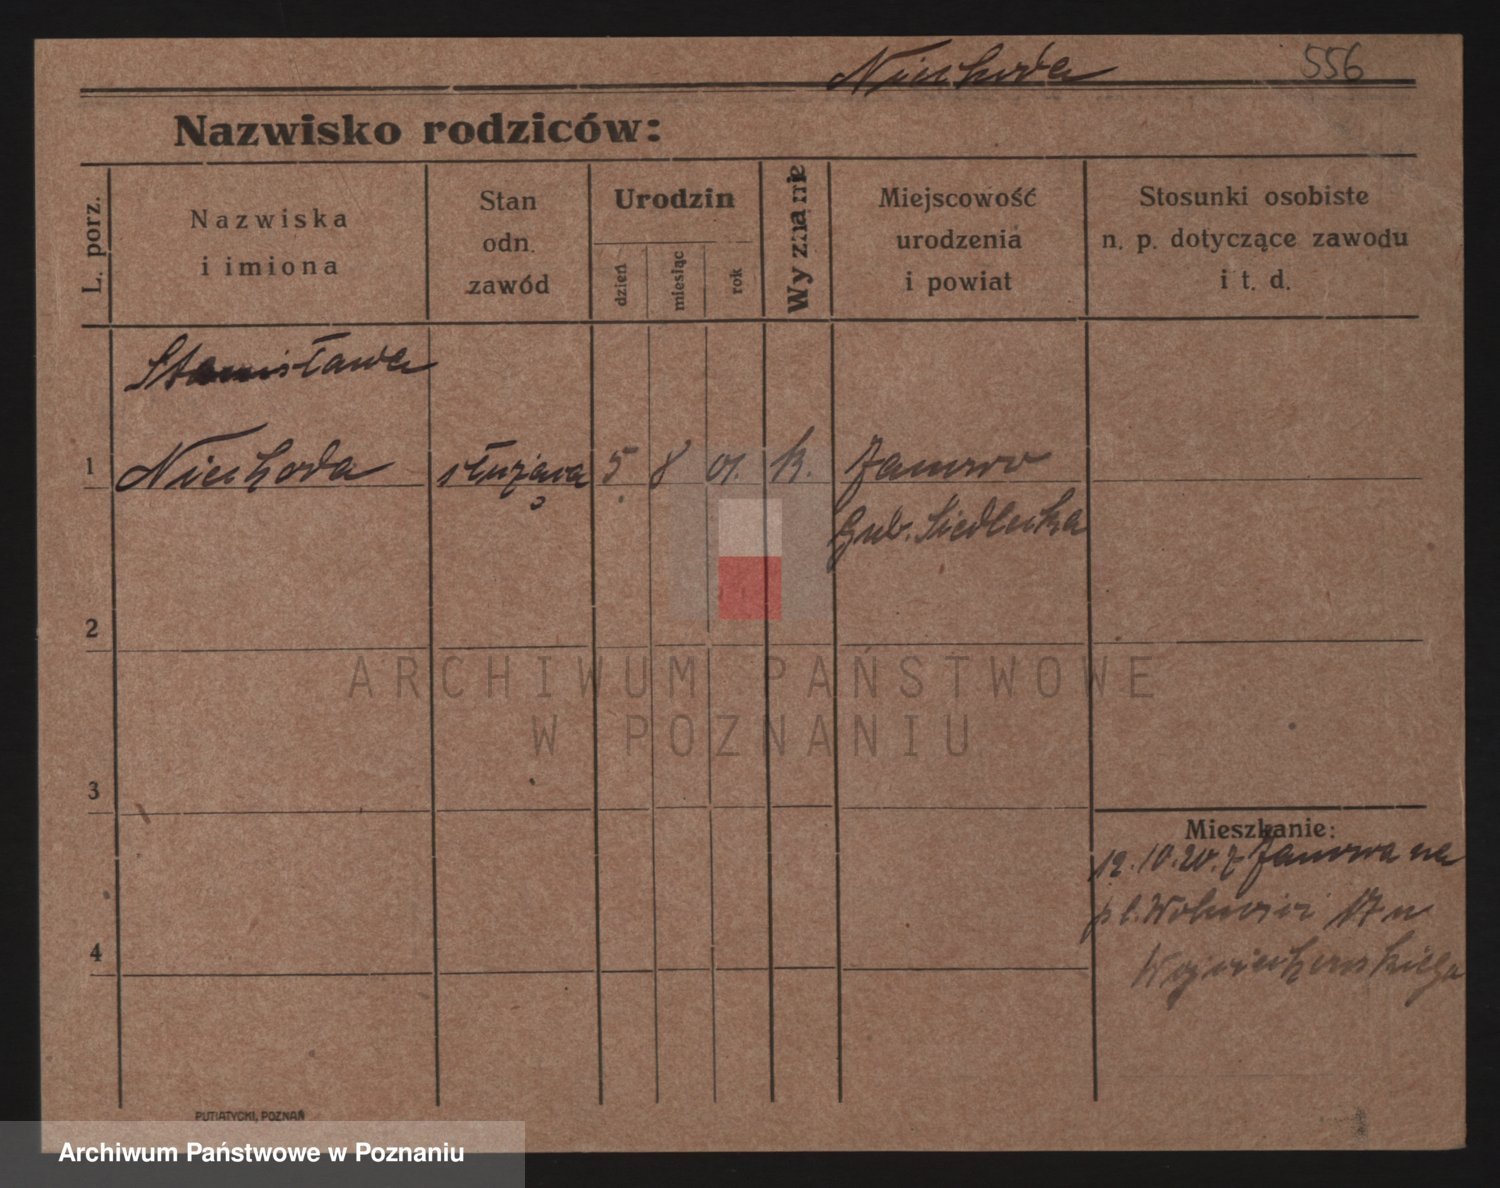 Niechoda 556
Nazwisko rodziców:
L. porz.
Nazwiska
i imiona
Stan
odn.
zawód
Urodzin
dzień
miesiąc
rok
Wyznanie
Miejscowość
urodzenia
i powiat
Stosunki osobiste
n. p. dotyczące zawodu
i t. d.
Stanisława
1 Niechoda służąca 5 8 01. k. Janowo
Gub. Siedlecka
2
3
4
Mieszkanie:
12.10.20. z Janowa na
pl. Wolności 17 u
Wojciechowskiego
PUTIATYCKI, POZNAŃ
ARCHIWUM PAŃSTWOWE
W POZNANIU
Archiwum Państwowe w Poznaniu